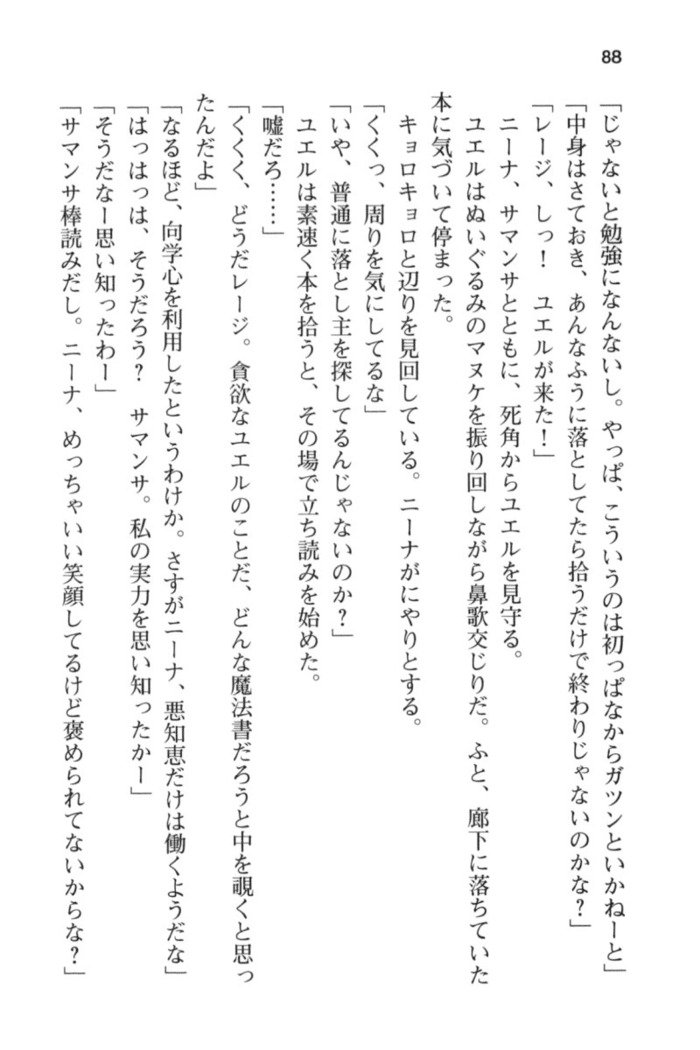 88
「じゃないと勉強になんないし。やっぱ、こういうのは初っぱなからガツンといかねーと」
「中身はさておき、あんなふうに落としてたら拾うだけで終わりじゃないのかな？」
「レージ、しっ！　ユエルが来た！」
　ニーナ、サマンサとともに、死角からユエルを見守る。
　ユエルはぬいぐるみのマヌケを振り回しながら鼻歌交じりだ。ふと、廊下に落ちていた
本に気づいて停まった。
　キョロキョロと辺りを見回している。ニーナがにやりとする。
「くくっ、周りを気にしてるな」
「いや、普通に落とし主を探してるんじゃないのか？」
　ユエルは素速く本を拾うと、その場で立ち読みを始めた。
「嘘だろ……」
「くくく、どうだレージ。貪欲なユエルのことだ、どんな魔法書だろうと中を覗くと思っ
たんだよ」
「なるほど、向学心を利用したというわけか。さすがニーナ、悪知恵だけは働くようだな」
「はっはっは、そうだろう？　サマンサ。私の実力を思い知ったかー」
「そうだなー思い知ったわー」
「サマンサ棒読みだし。ニーナ、めっちゃいい笑顔してるけど褒められてないからな？」